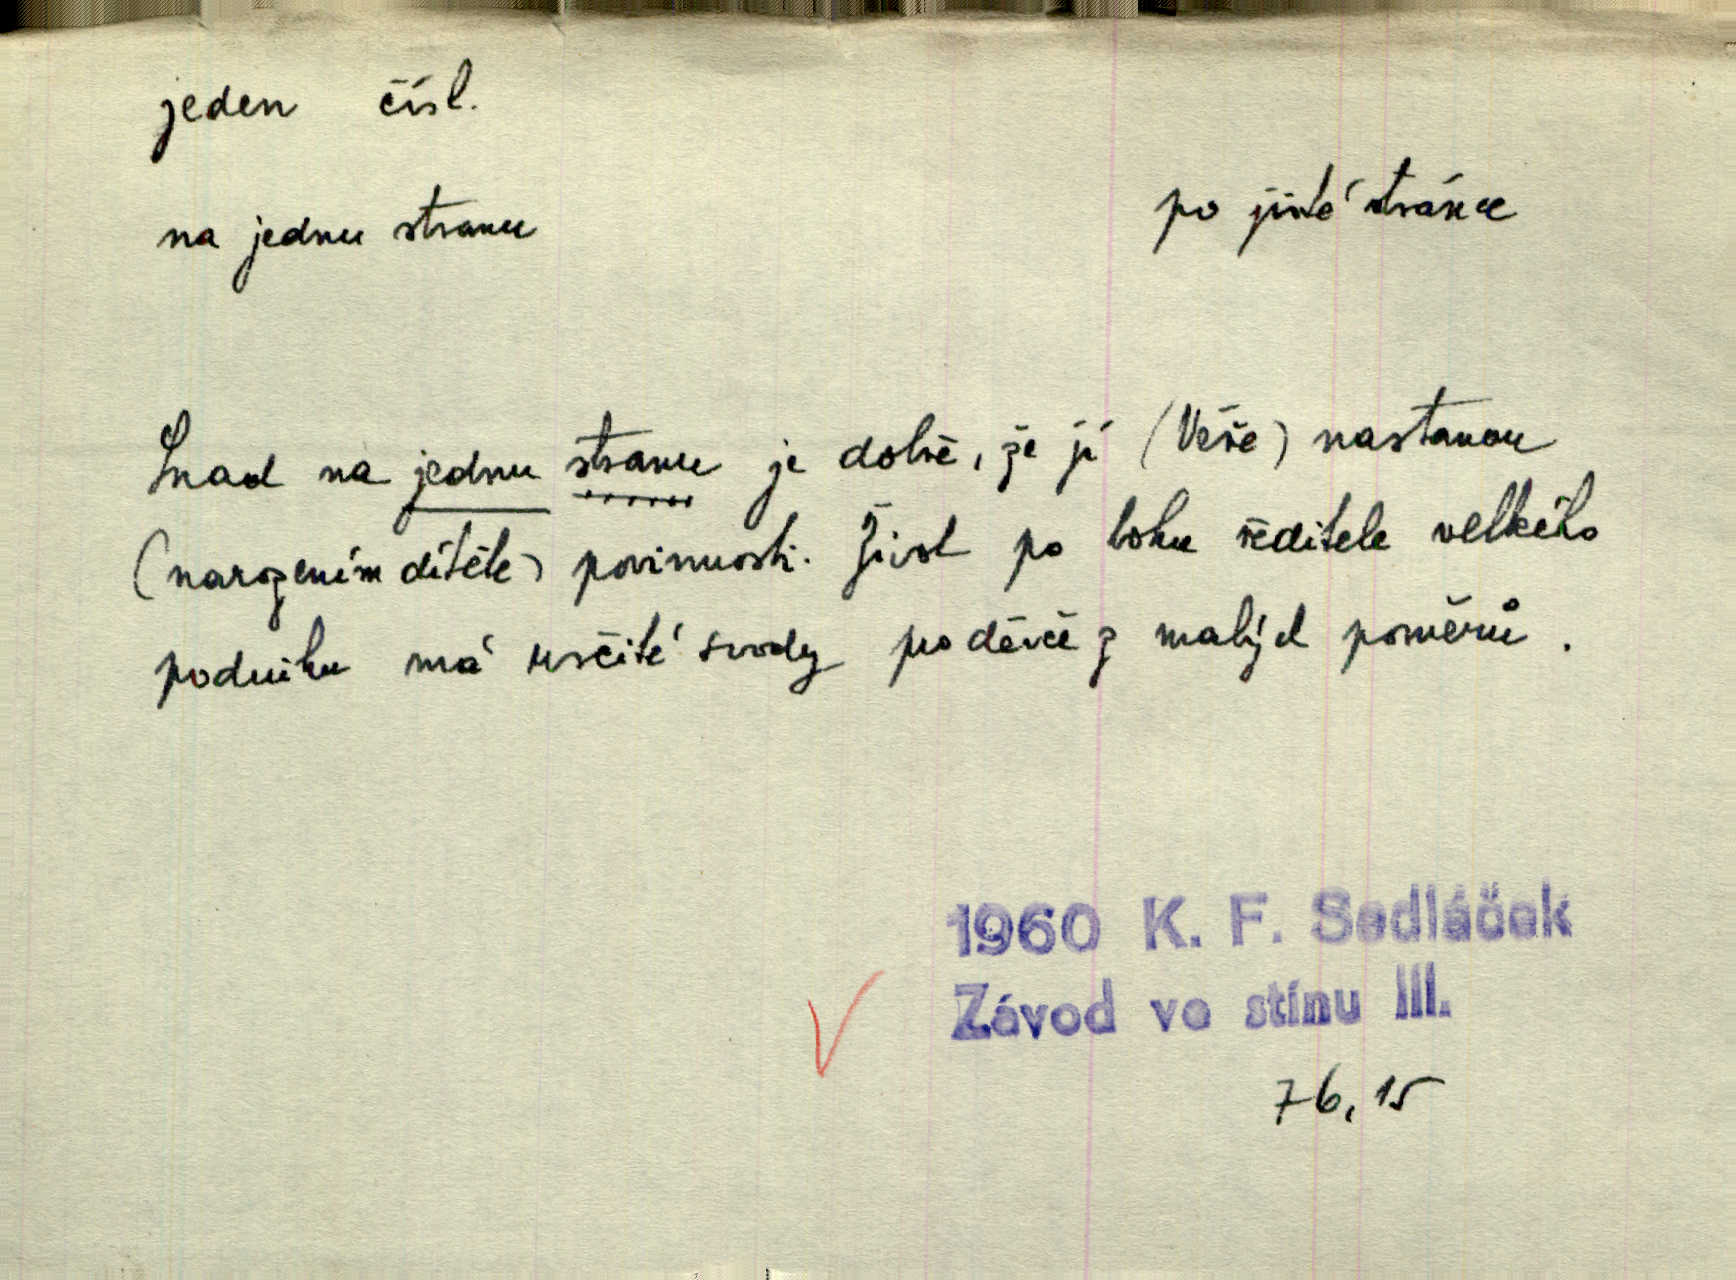 jeden čísl.
na jednu stranu
po jisté stránce
Snad na jednu stranu je dobře, že jí (Věře) nastanou
(narozením dítěte) povinnosti. Život po boku ředitele velkého
podniku má určité svody pro děvče z malých poměrů.
1960 K. F. Sedláček
Závod ve stínu III.
76, 15